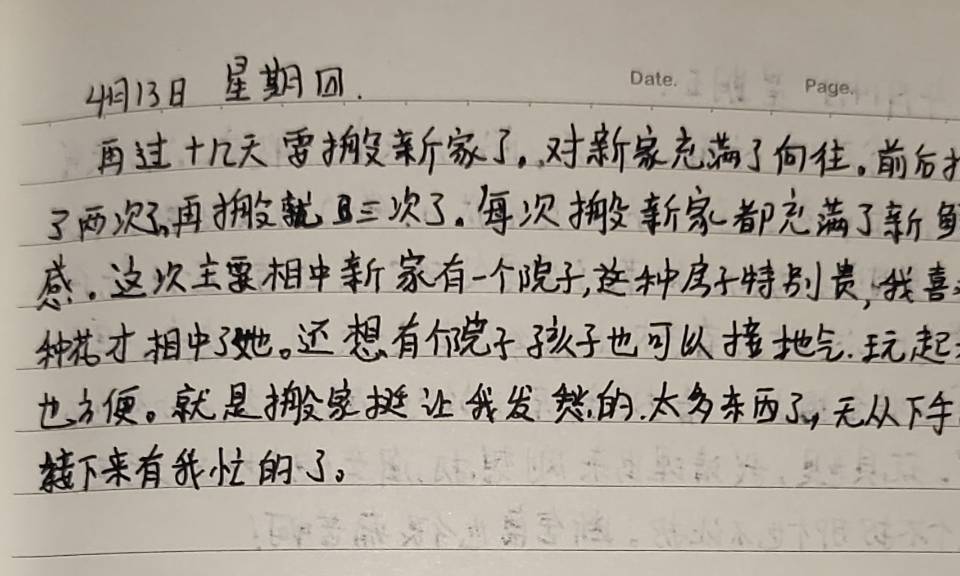 4月13日 星期四.
Date. Page.
再过十几天要搬新家了。对新家充满了向往。前后
了两次了,再搬就是三次了。每次搬新家都充满了新鲜
感。这次主要相中新家有一个院子,这种房子特别贵,我喜
种花才相中了她。还想有个院子孩子也可以接地气.玩起
也方便。就是搬家挺让我发愁的.太多东西了,无从下手
接下来有我忙的了。